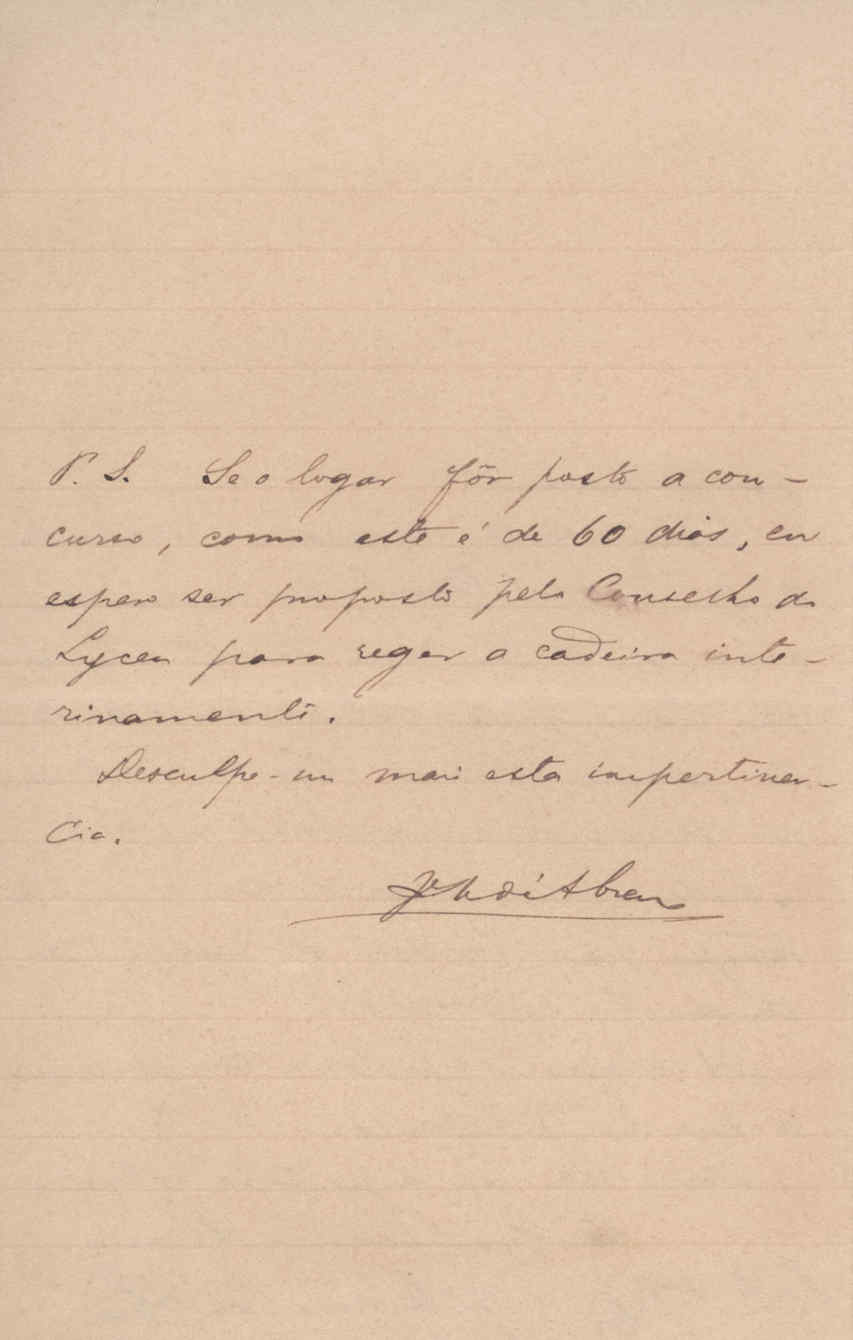 P. S. Se o logar fôr posto a con-
curso, como este é de 60 dias, eu
espero ser proposto pelo Conselho do
Lyceu para reger a cadeira inte-
rinamente.
Desculpe-me mais esta impertinen-
cia.
d'Abreu